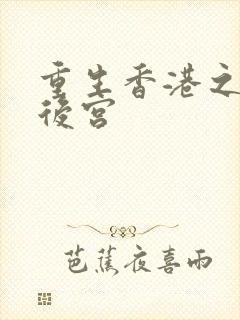 重生香港之
後宮
芭蕉夜喜雨